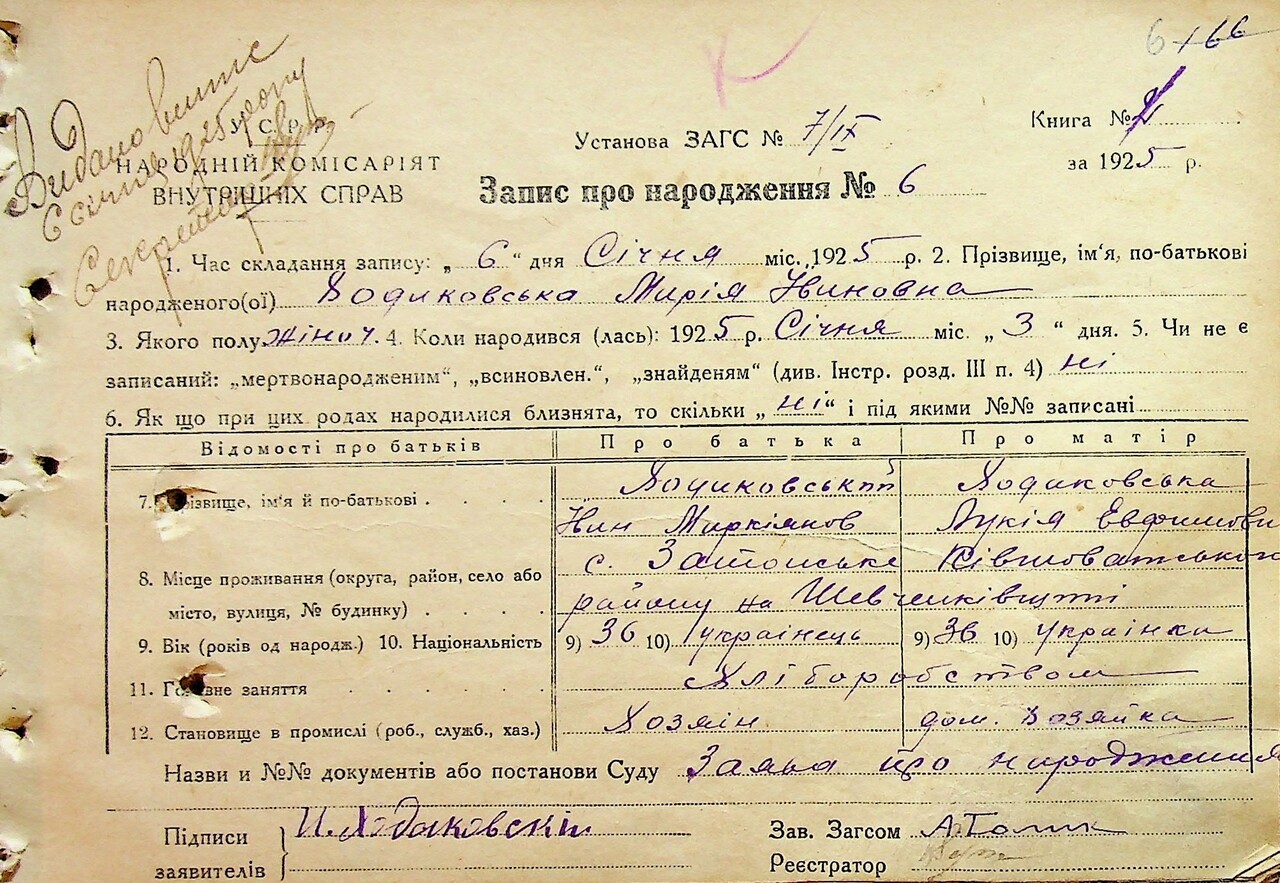 6 166
Видано витяг
6 січня 1925 року
Секретар
У. С. Р. Р.
НАРОДНІЙ КОМІСАРІЯТ
ВНУТРІШНІХ СПРАВ
Установа ЗАГС № 7/IX
Книга №
за 1925 р.
Запис про народження № 6
1. Час складання запису: „ 6 “ дня Січня міс. 1925 р. 2. Прізвище, ім'я, по-батькові
народженого(ої) Ходаковська Марія Йвановна
3. Якого полу жіноч. 4. Коли народився (лась): 1925 р. Січня міс. „ 3 “ дня. 5. Чи не є
записаний: „мертвонародженим“, „всиновлен.“, „знайденям“ (див. Інстр. розд. III п. 4) ні
6. Як що при цих родах народилися близнята, то скільки „ ні “ і під якими №№ записані
Відомості про батьків Про батька Про матір
7. Прізвище, ім'я й по-батькові Ходаковський Ходаковська
Йван Маркіянов Лукія Евфимовн
8. Місце проживання (округа, район, село або с. Затонське Ківшоватського
місто, вулиця, № будинку) району на Шевченківщині
9. Вік (років од народж.) 10. Національність 9) 36 10) українець 9) 36 10) українка
11. Головне заняття Хліборобством
12. Становище в промислі (роб., служб., хаз.) Хозяін дом. хозяйка
Назви и №№ документів або постанови Суду Заява про народження
Підписи И. Ходаковскій Зав. Загсом
заявителів Реєстратор